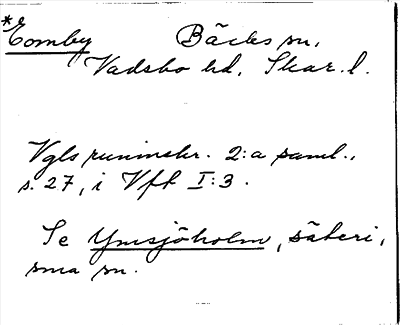 *e
Comby Bäcks sn,
Vadsbo hd, Skar. l.
Vgls runinskr. 2:a saml.,
s. 27, i Vft I:3.
Se Ymsjöholm, säteri,
sma sn.